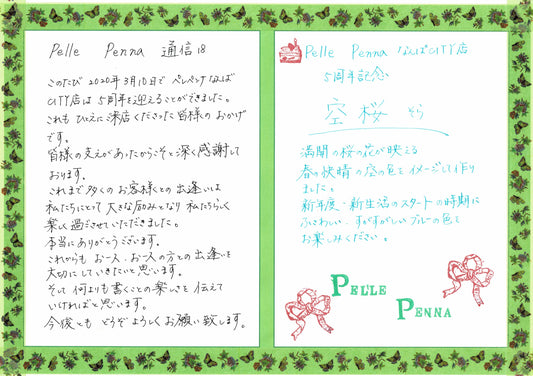 Pelle Penna 通信 18
このたび 2020年3月10日で ペレペンナ なんば
CITY店は 5周年を迎えることができました。
これも ひとえに ご来店くださった皆様の おかげ
です。
皆様の支えがあったからこそと 深く感謝して
おります。
これまで多くの お客様との 出逢いは
私たちにとって 大きな励みとなり 私たちらしく
楽しく過ごさせていただきました。
本当に ありがとうございます。
これからも お一人、お一人の方との 出逢いを
大切にしていきたいと 思います。
そして 何よりも 書くことの 楽しさを 伝えて
いければと 思います。
今後とも どうぞ よろしく お願い 致します。
Pelle Penna なんばCITY店
5周年記念
空桜 そら
満開の桜の花が映える
春の快晴の空の色を イメージして作り
ました。
新年度・新生活のスタートの時期に
ふさわしい、すがすがしいブルーの色を
お楽しみください。
PELLE
PENNA